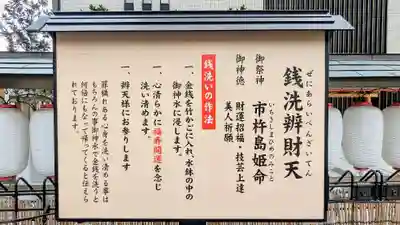 銭洗辨財天
ぜにあらいべんざいてん
御祭神 市杵島姫命
いちきしまひめのみこと
御神徳 財運招福・技芸上達
美人祈願
銭洗いの作法
一、金銭を竹かごに入れ、水鉢の中の
御神水に浸します。
一、心清らかに福寿開運を念じ
洗い清めます。
一、辨天様にお参りします
罪穢れある心身を洗い清める事は
もちろんの事御神水で金銭を洗うと
何倍にもなって帰ってくると伝えら
れております。